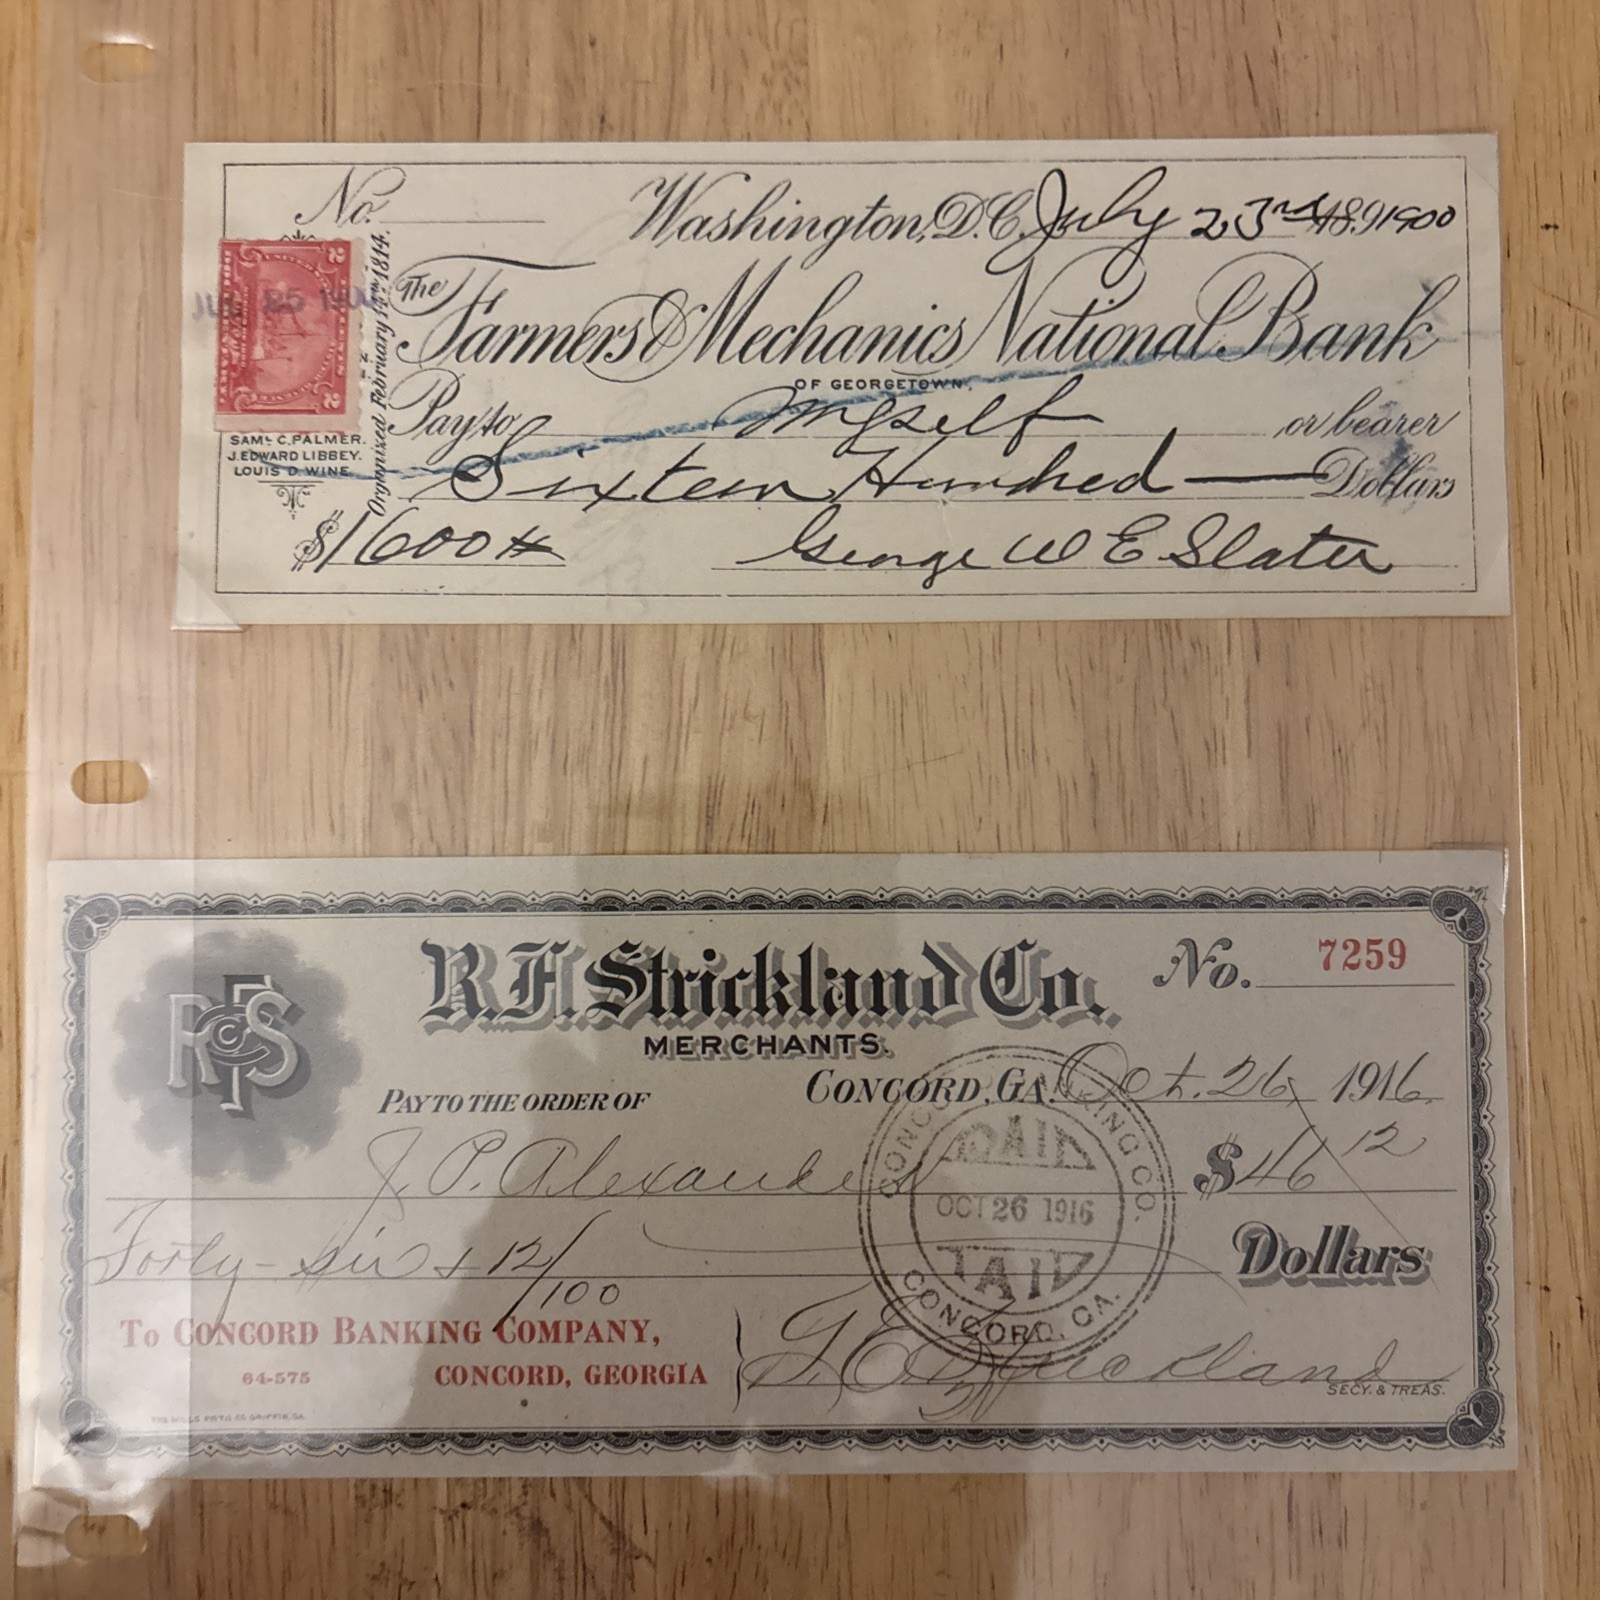 No.
Washington, D.C. July 23rd 189 1900
JUL 25 1900
Organized February 14th 1814.
The
Farmers & Mechanics National Bank
OF GEORGETOWN,
Pay to Myself or bearer
SAML. C. PALMER.
J. EDWARD LIBBEY.
LOUIS D. WINE
Sixteen Hundred Dollars
$1600
George W E Slater
RFS
Co
R. F. Strickland Co.
MERCHANTS.
No. 7259
CONCORD, GA. Oct. 26, 1916
PAY TO THE ORDER OF
J. P. Alexander $46 12
Forty-six & 12/100 Dollars
CONCORD BANKING CO.
PAID
OCT 26 1916
PAID
CONCORD, GA.
TO CONCORD BANKING COMPANY,
64-575 CONCORD, GEORGIA
Strickland
SECY. & TREAS.